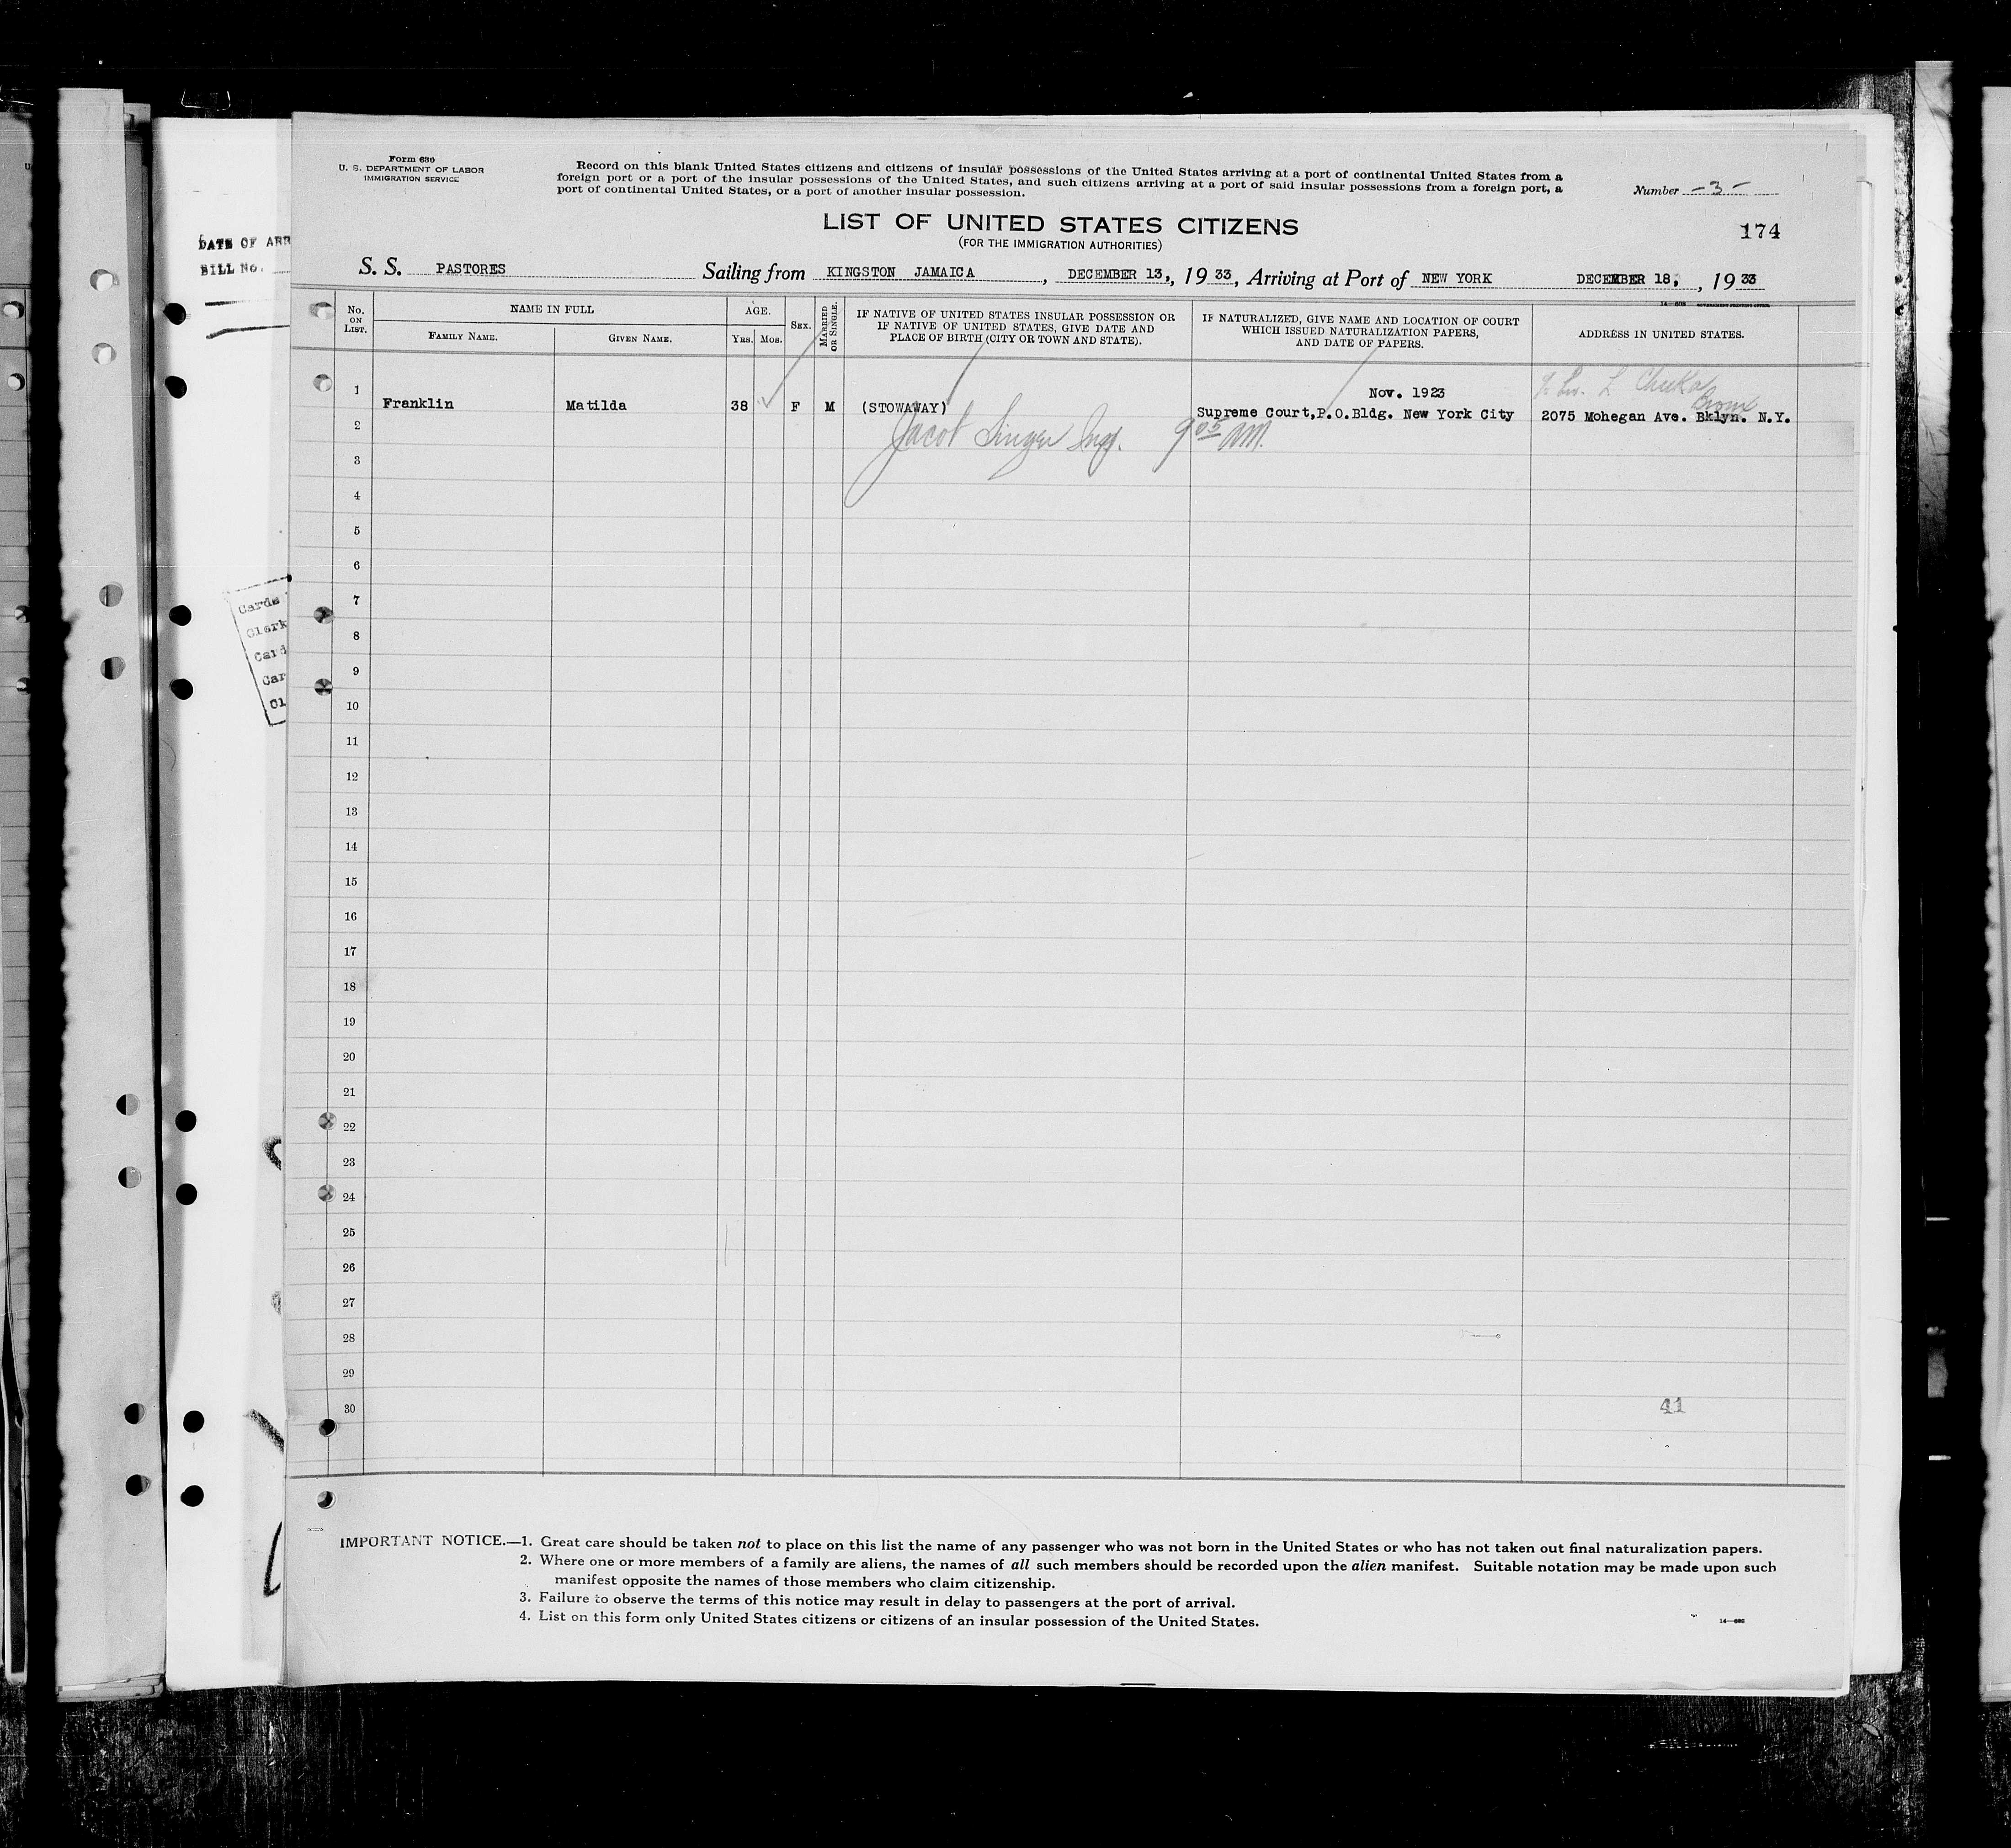 DATE OF ARR
BILL No.
Cards
Clerk
Card
Car
Cl
Form 630
U. S. DEPARTMENT OF LABOR
IMMIGRATION SERVICE
Record on this blank United States citizens and citizens of insular possessions of the United States arriving at a port of continental United States from a
foreign port or a port of the insular possessions of the United States, and such citizens arriving at a port of said insular possessions from a foreign port, a
port of continental United States, or a port of another insular possession.
Number - 3 -
174
LIST OF UNITED STATES CITIZENS
(FOR THE IMMIGRATION AUTHORITIES)
S. S. PASTORES Sailing from KINGSTON JAMAICA, DECEMBER 13,, 1933, Arriving at Port of NEW YORK DECEMBER 18, , 1933
No. ON LIST.
NAME IN FULL
FAMILY NAME.
GIVEN NAME.
AGE.
YRS. MOS.
SEX.
MARRIED OR SINGLE.
IF NATIVE OF UNITED STATES INSULAR POSSESSION OR
IF NATIVE OF UNITED STATES, GIVE DATE AND
PLACE OF BIRTH (CITY OR TOWN AND STATE).
IF NATURALIZED, GIVE NAME AND LOCATION OF COURT
WHICH ISSUED NATURALIZATION PAPERS,
AND DATE OF PAPERS.
ADDRESS IN UNITED STATES.
1 Franklin Matilda 38 F M (STOWAWAY)
Nov. 1923
Supreme Court,P.O.Bldg. New York City
Bronx
2075 Mohegan Ave. Bklyn. N.Y.
Jacob Singer Insp. 9 05 AM.
2
3
4
5
6
7
8
9
10
11
12
13
14
15
16
17
18
19
20
21
22
23
24
25
26
27
28
29
30
41
IMPORTANT NOTICE.—1. Great care should be taken not to place on this list the name of any passenger who was not born in the United States or who has not taken out final naturalization papers.
2. Where one or more members of a family are aliens, the names of all such members should be recorded upon the alien manifest. Suitable notation may be made upon such
manifest opposite the names of those members who claim citizenship.
3. Failure to observe the terms of this notice may result in delay to passengers at the port of arrival.
4. List on this form only United States citizens or citizens of an insular possession of the United States.